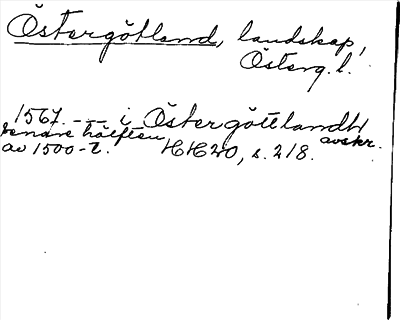 Östergötland, landskap,
Österg. l.
1567. - - - i Östergöttlandh
avskr.
senare hälften
av 1500-t. HH20, s. 218.